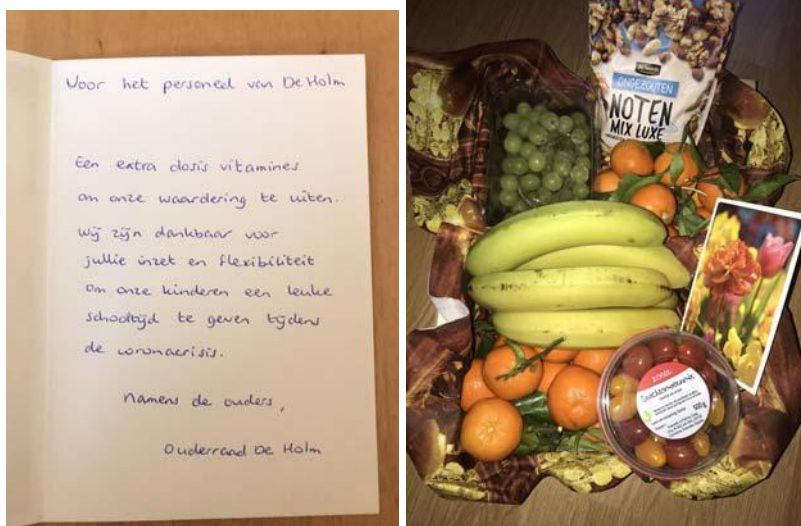 Voor het personeel van De Holm
Een extra dosis vitamines
om onze waardering te uiten.
Wij zijn dankbaar voor
jullie inzet en flexibiliteit
om onze kinderen een leuke
schooltijd te geven tijdens
de coronacrisis.
Namens de ouders,
Ouderraad De Holm
ONGEZOUTEN
NOTEN
MIX LUXE